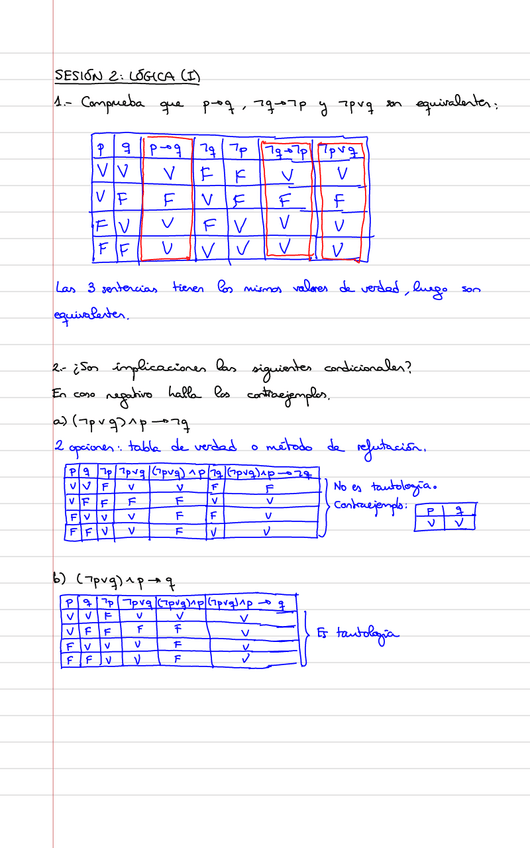 SESIÓN 2: LÓGICA (I)
1.- Comprueba que p→q, ¬q→¬p y ¬p∨q son equivalentes:
p q p→q ¬q ¬p ¬q→¬p ¬p∨q
V V V F F V V
V F F V F F F
F V V F V V V
F F V V V V V
Las 3 sentencias tienen los mismos valores de verdad, luego son
equivalentes.
2.- ¿Son implicaciones los siguientes condicionales?
En caso negativo halla los contraejemplos.
a) (¬p∨q)∧p→¬q
2 opciones: tabla de verdad o método de refutación.
p q ¬p ¬p∨q (¬p∨q)∧p ¬q (¬p∨q)∧p→¬q
V V F V V F F
V F F F F V V
F V V V F F V
F F V V F V V
No es tautología.
Contraejemplo:
p q
V V
b) (¬p∨q)∧p→q
p q ¬p ¬p∨q (¬p∨q)∧p (¬p∨q)∧p→q
V V F V V V
V F F F F V
F V V V F V
F F V V F V
Es tautología